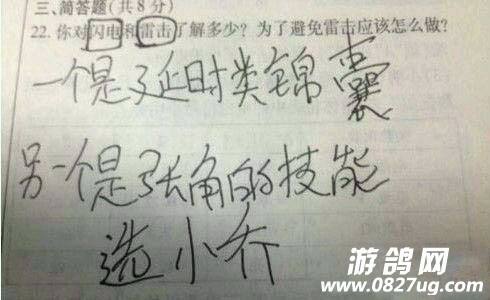 三、简答题(共8分)
22. 你对闪电和雷击了解多少？为了避免雷击应该怎么做？
一个是延时类锦囊
另一个是张角的技能
选小乔
游鸽网
www.0827ug.com